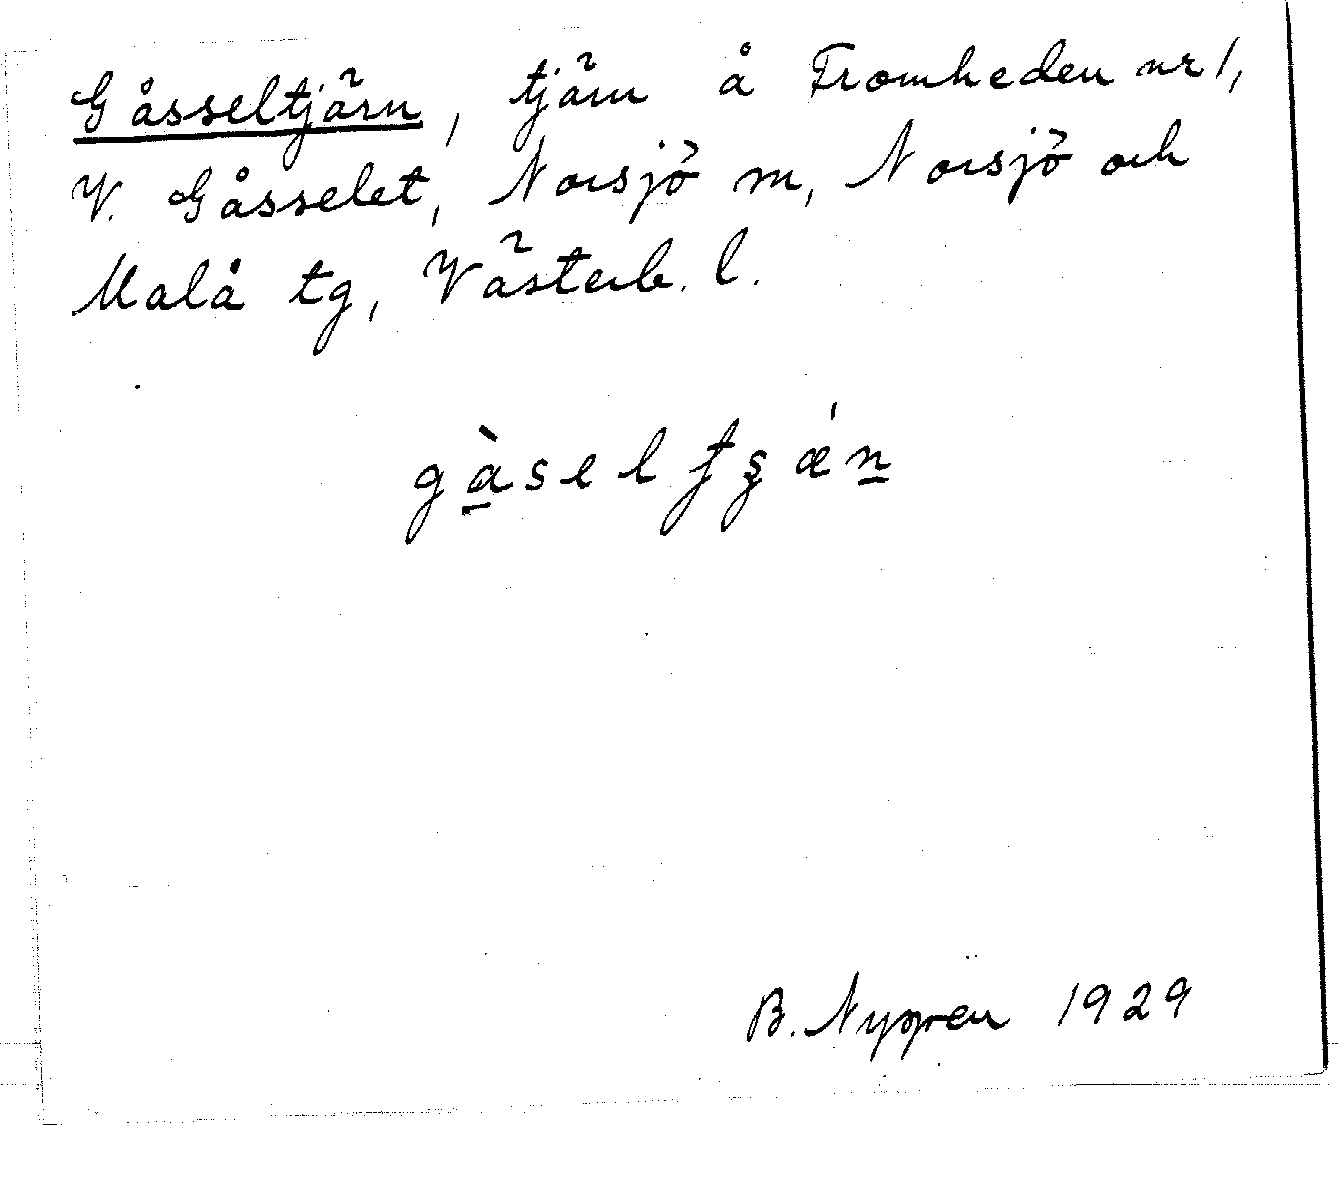 Gåsseltjärn, tjärn å Fromheden nr 1,
V. Gåsselet, Norsjö m, Norsjö och
Malå tg, Västerb. l.
gà̱sel tʂǽṉ
B. Nygren 1929